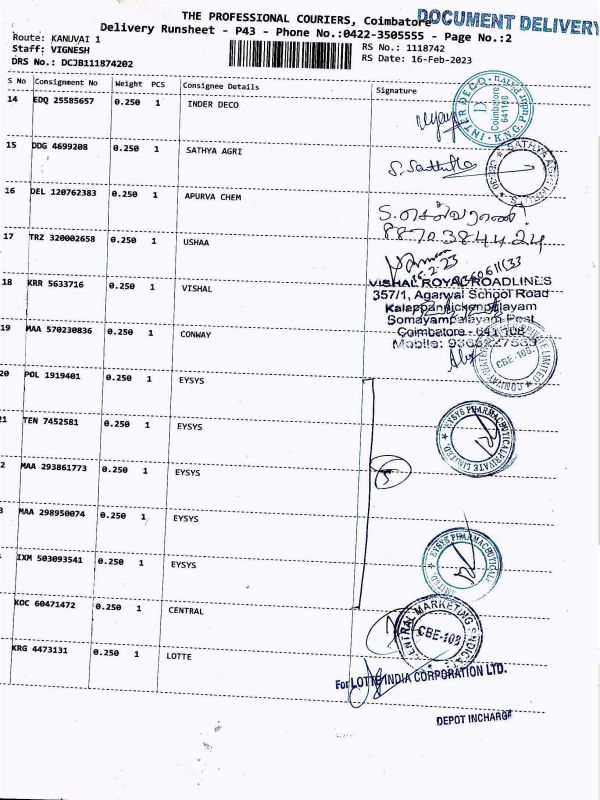 THE PROFESSIONAL COURIERS, Coimbatore
DOCUMENT DELIVERY
Delivery Runsheet - P43 - Phone No.:0422-3505555 - Page No.:2
Route: KANUVAI 1
Staff: VIGNESH
DRS No.: DCJB111874202
RS No.: 1118742
RS Date: 16-Feb-2023
S No Consignment No Weight PCS Consignee Details Signature
14 EDQ 25585657 0.250 1 INDER DECO
15 DDG 4699208 0.250 1 SATHYA AGRI
16 DEL 120762383 0.250 1 APURVA CHEM
S. செல்வராணி
8870384424
17 TRZ 320002658 0.250 1 USHAA
18 KRR 5633716 0.250 1 VISHAL
VISHAL ROYAL ROADLINES
357/1, Agarwal School Road
Kalappanaickenpalayam
Somayampalayam Post
Coimbatore - 641 108
19 MAA 570230836 0.250 1 CONWAY
CBE-108
20 POL 1919401 0.250 1 EYSYS
21 TEN 7452581 0.250 1 EYSYS
EYSYS PHARMACEUTICAL PRIVATE LIMITED
2 MAA 293861773 0.250 1 EYSYS
5
3 MAA 298950074 0.250 1 EYSYS
IXM 503093541 0.250 1 EYSYS
EYSYS PHARMACEUTICAL
LIMITED
KOC 60471472 0.250 1 CENTRAL
CENTRAL MARKETING SINDICATE
CBE-108
KRG 4473131 0.250 1 LOTTE
For LOTTE INDIA CORPORATION LTD.
DEPOT INCHARGE